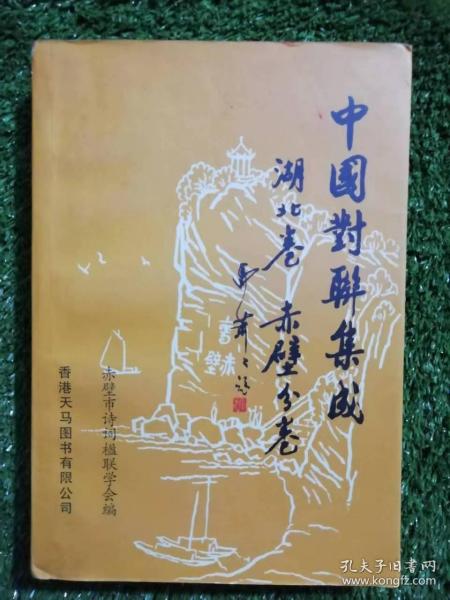 中國對聯集成
湖北卷 赤壁分卷
赤壁
赤壁市诗词楹联学会编
香港天马图书有限公司
孔夫子旧书网
www.kongfz.com